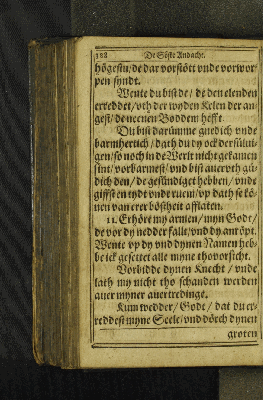 188 De Söste Andacht.
högesten/ de dar vorstött vnde vorwor
pen syndt.
Wente du bist de/ de den elenden
erreddet/ vth der wyden Kelen der an-
gest/ de neenen Boddem hefft.
Du bist darümme gnedich vnde
barmhertich/ dath du dy ock der sülui-
gen/ so noch in de Werlt nicht gekamen
sint/ vorbarmest/ vnd bist auer vth gü-
dich den/ de gesündiget hebben/ vnde
giffst en tydt vnde ruem/ vp dath se kö-
nen van erer bößheit afflaten.
11. Erhöre my armen/ myn Godt/
de vor dy nedder falle/ vnd dy anröpt.
Wente vp dy vnd dynen Namen heb-
be ick gesettet alle myne thovorsicht.
Vorbidde dynen Knecht/ vnde
lath my nicht tho schanden werden
auer myner auertredinge.
Kum wedder/ Godt/ dat du er-
reddest myne Seele/ vnd dörch dynen
groten